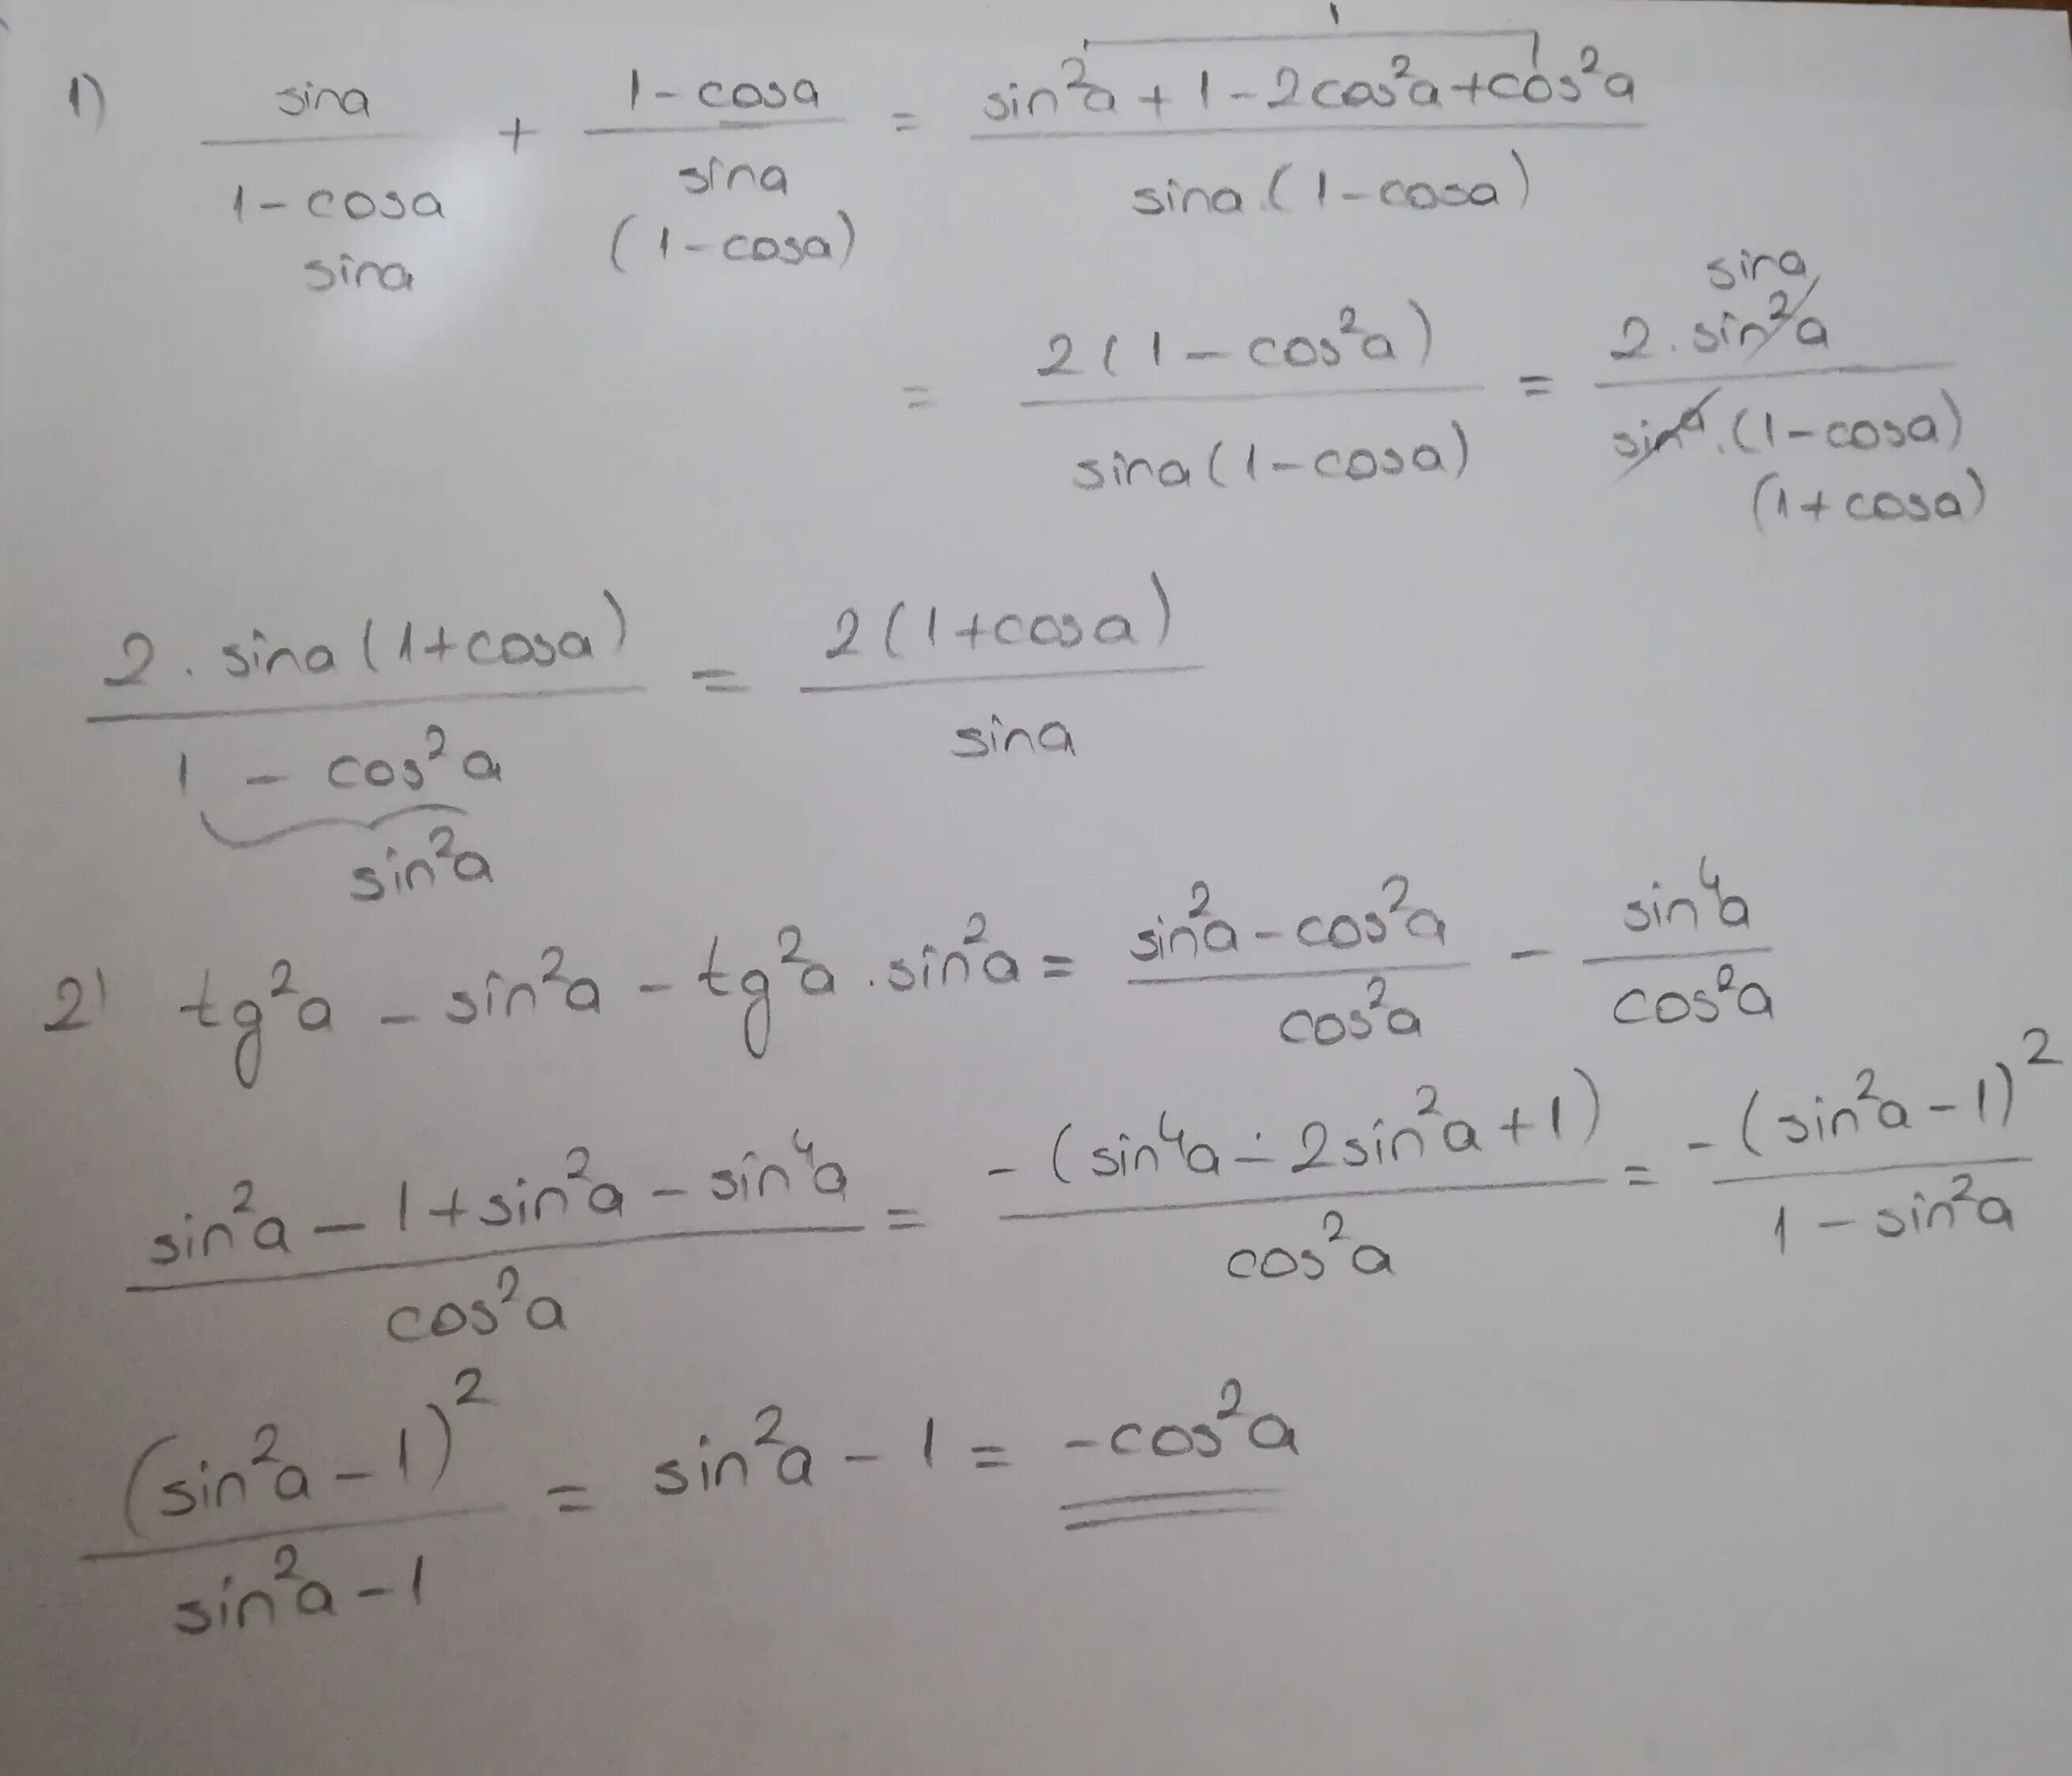 1) sina/(1-cosa) + (1-cosa)/sina = (sin²a + 1 - 2cos²a + cos²a)/(sina.(1-cosa))
1
sina (1-cosa)
= 2(1-cos²a)/(sina(1-cosa)) = 2.sin²a/(sina.(1-cosa))
sina
(1+cosa)
2.sina(1+cosa)/(1-cos²a) = 2(1+cosa)/sina
sin²a
2) tg²a - sin²a - tg²a.sin²a = (sin²a-cos²a)/cos²a - sin⁴a/cos²a
(sin²a - 1 + sin²a - sin⁴a)/cos²a = -(sin⁴a - 2sin²a + 1)/cos²a = -(sin²a-1)²/(1-sin²a)
(sin²a-1)²/(sin²a-1) = sin²a - 1 = -cos²a